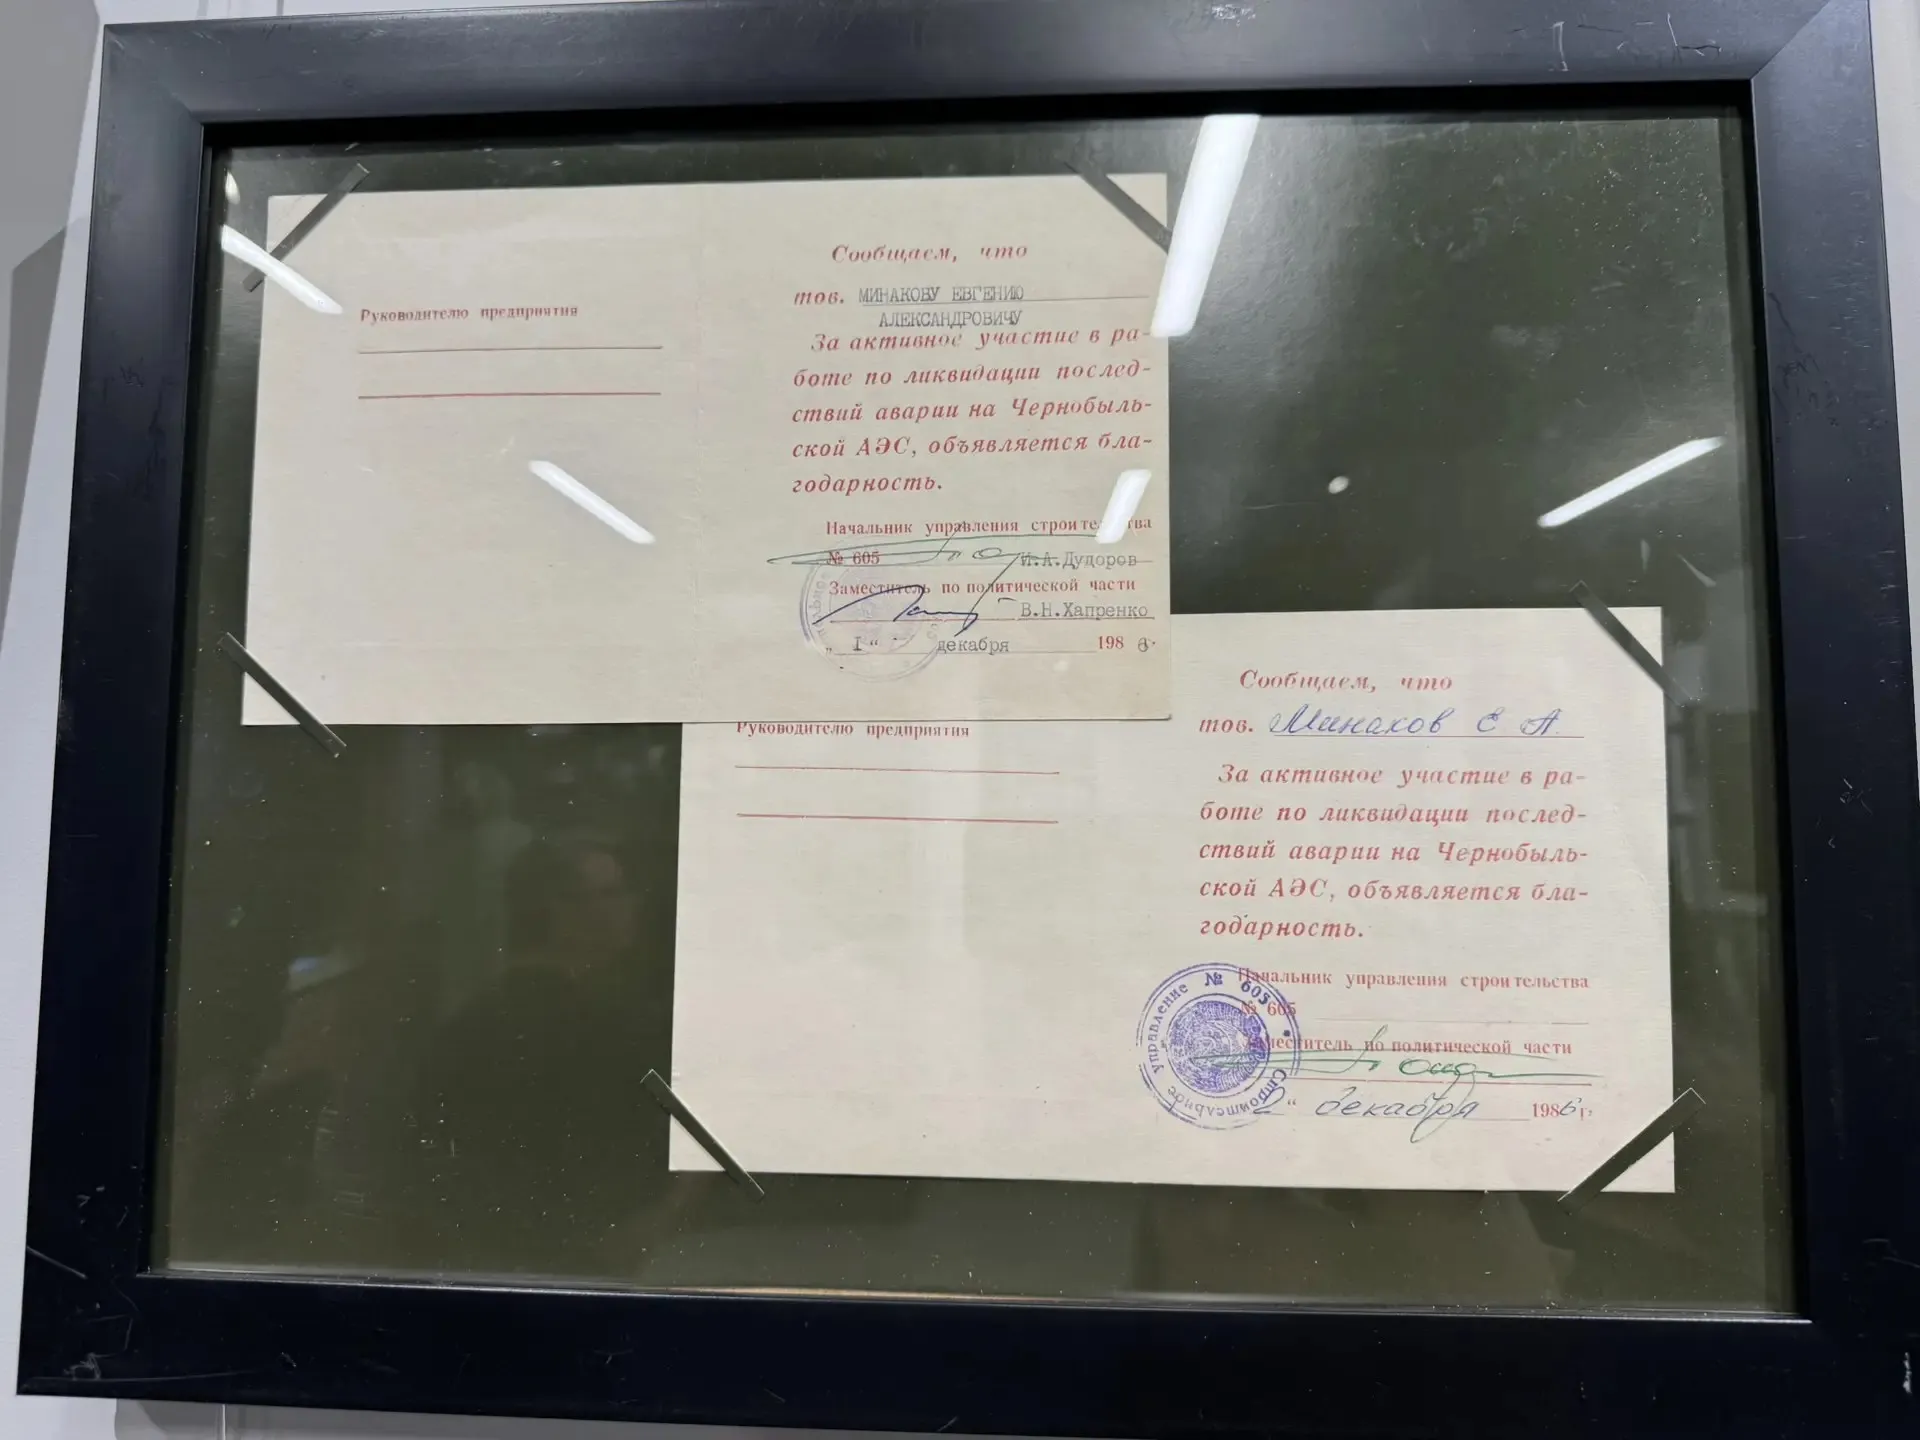 Руководителю предприятия
Сообщаем, что
тов. МИНАКОВУ ЕВГЕНИЮ
АЛЕКСАНДРОВИЧУ
За активное участие в ра-
боте по ликвидации послед-
ствий аварии на Чернобыль-
ской АЭС, объявляется бла-
годарность.
Начальник управления строительства
№ 605 И.А.Дудоров
Заместитель по политической части
В.Н.Хапренко
„ I “ декабря 198 г.
Руководителю предприятия
Сообщаем, что
тов. Минаков Е А.
За активное участие в ра-
боте по ликвидации послед-
ствий аварии на Чернобыль-
ской АЭС, объявляется бла-
годарность.
Начальник управления строительства
№ 605
Заместитель по политической части
2 “ декабря 1986 г.
Строительное управление № 605